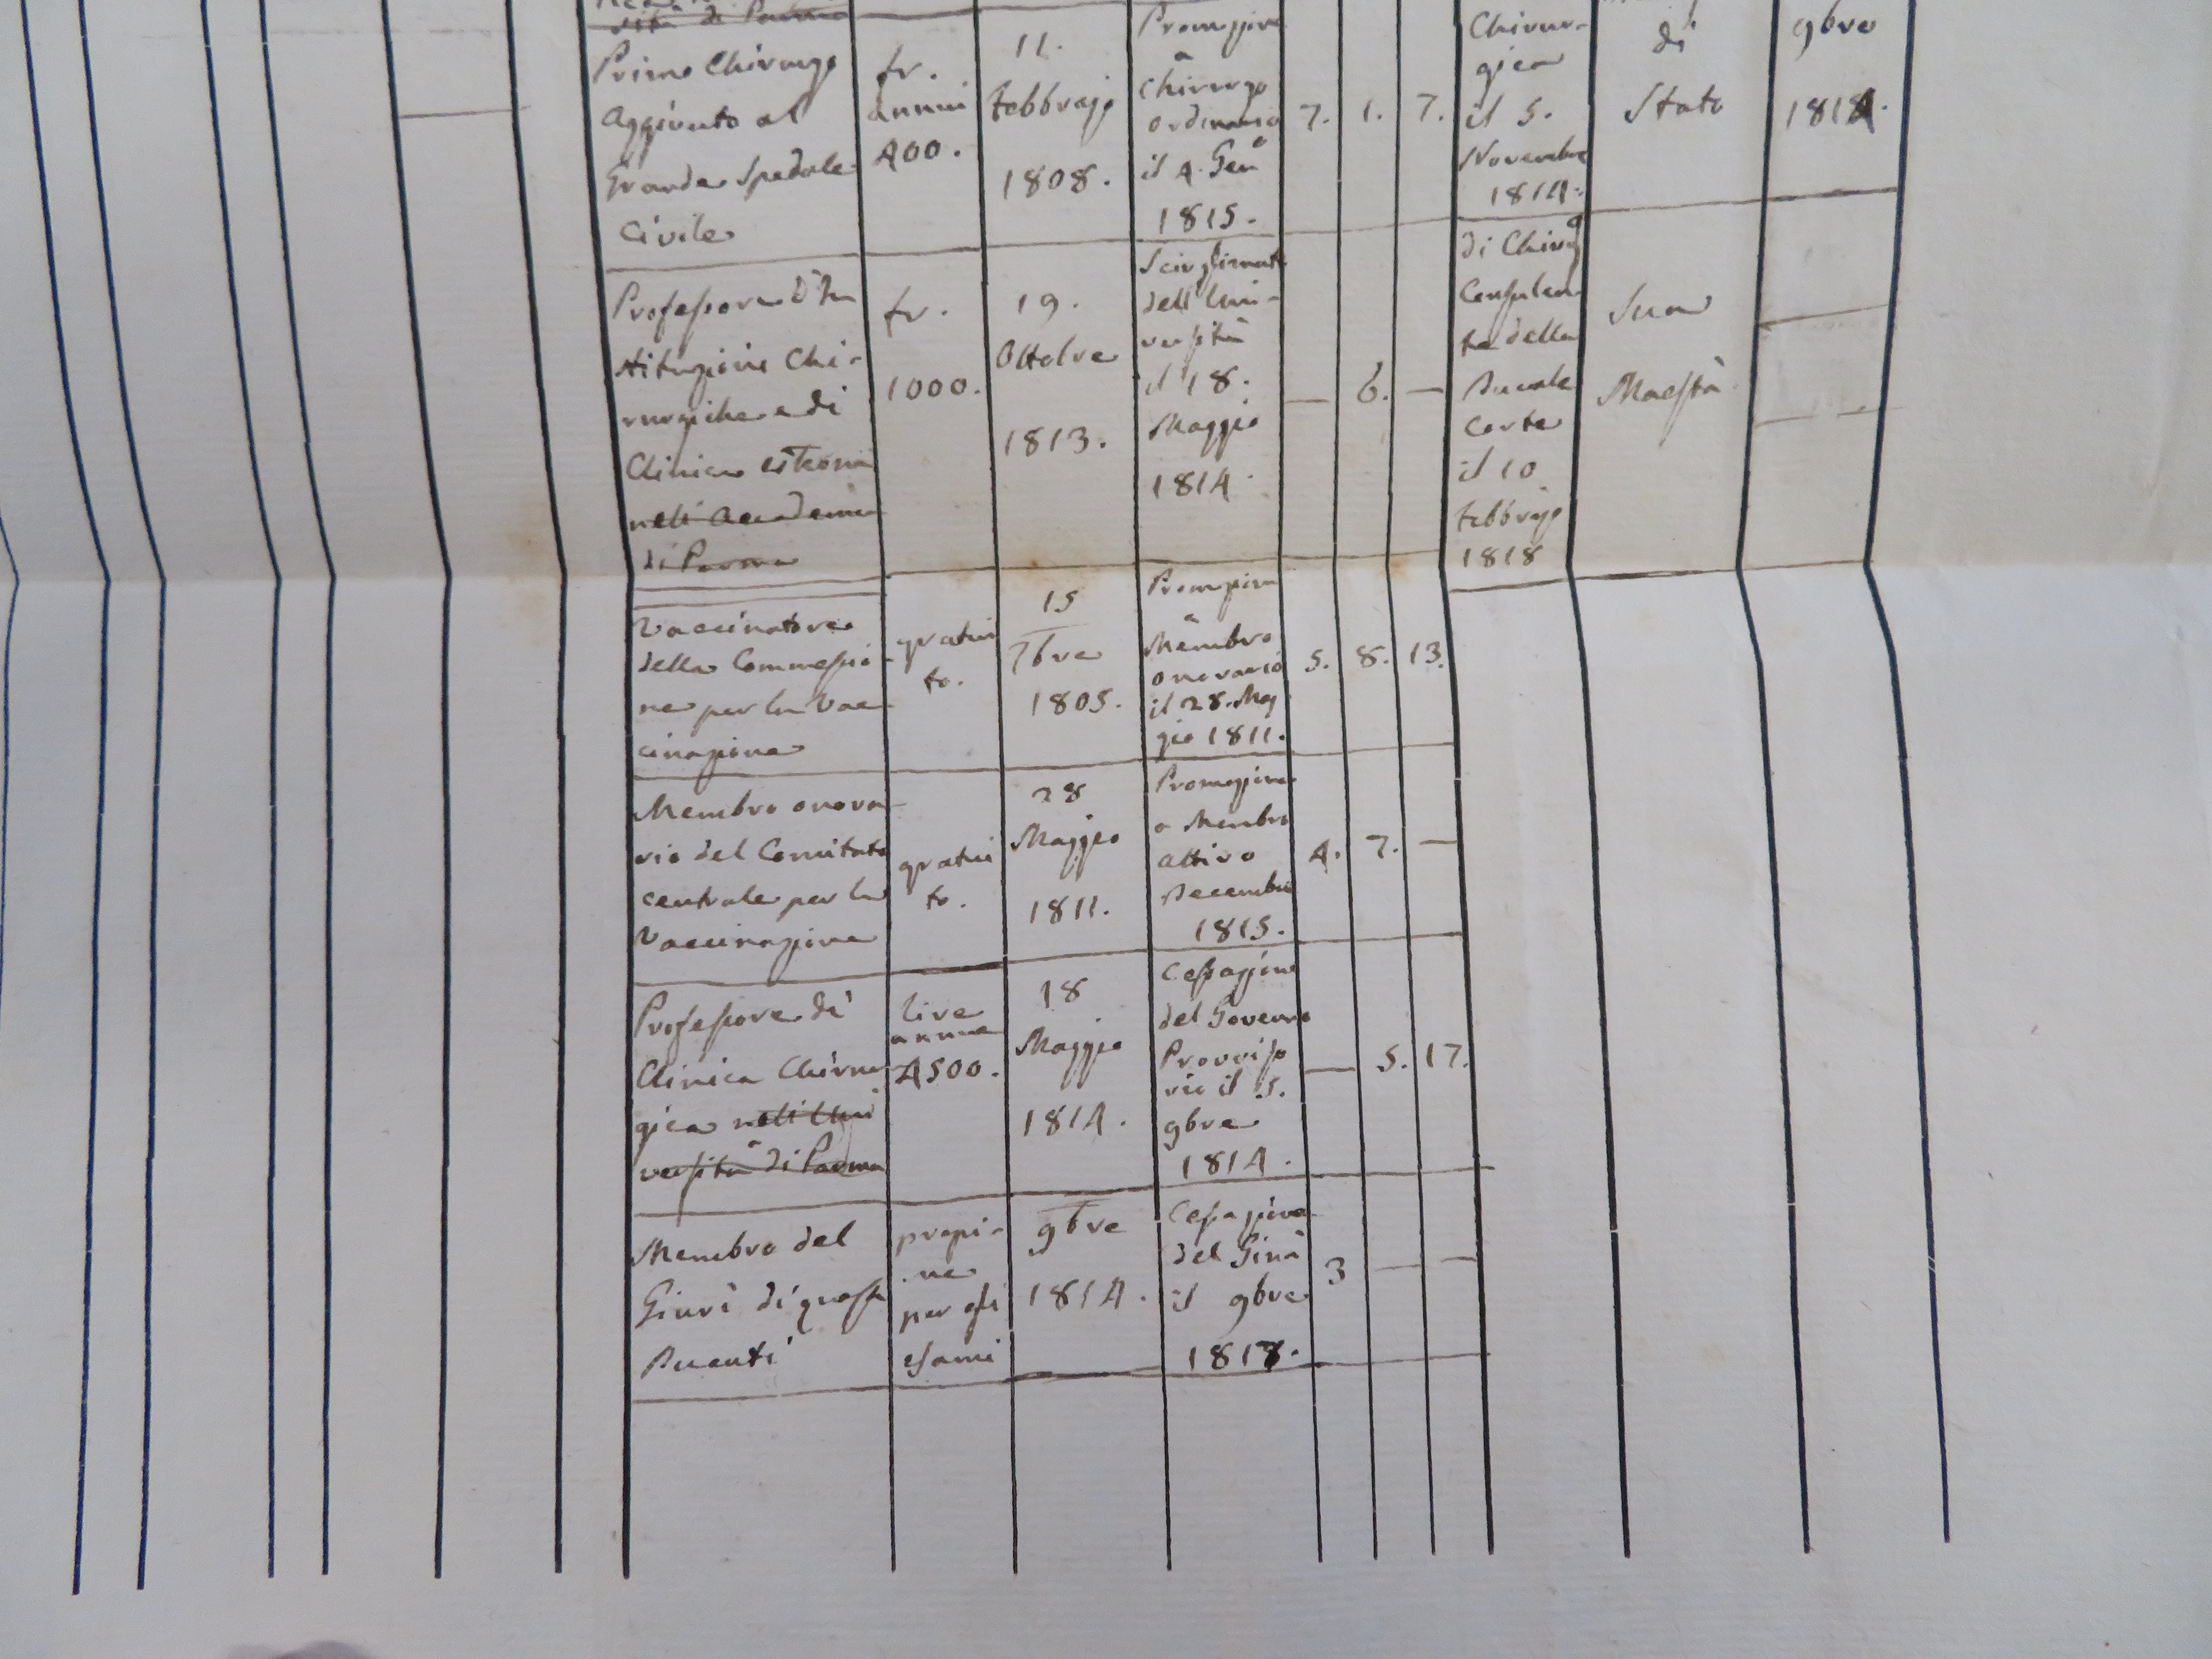 sità di Parma
Primo Chirurgo
aggiunto al
Grande Spedale
Civile
fr.
annui
400.
11.
Febbrajo
1808.
Promozione
a
Chirurgo
ordinario
il 4. Genº
1815.
7. 1. 7.
Chirur-
gica
il 5.
Novembre
1814.
di
Stato
9bre
1814.
Professore d'In
stituzioni Chi-
rurgiche e di
Clinica esterna
nell'Accademia
di Parma
fr.
1000.
19.
Ottobre
1813.
Scioglimento
dell'Uni-
versità
il 18.
Maggio
1814.
— 6. —
di Chirº
Consulen-
te della
Ducale
Corte
il 10
Febbrajo
1818
Sua
Maestà
Vaccinatore
della Commessio-
ne per la Vac
cinazione
gratui
to.
15
7bre
1805.
Promozione
a
Membro
onorario
il 28. Mag
gio 1811.
5. 8. 13.
Membro onora-
rio del Comitato
centrale per la
Vaccinazione
gratui
to.
28
Maggio
1811.
Promozione
a Membro
attivo
Decembre
1815.
4. 7. —
Professore di
Clinica Chirur
gica nell'Uni
versità di Parma
lire
annue
4500.
18
Maggio
1814.
Cessazione
del Governo
Provviso
rio il 5.
9bre
1814.
— 5. 17.
Membro del
Giurì di questi
Ducati
propi-
ne
per gli
esami
9bre
1814.
Cessazione
del Giurì
il 9bre
1817.
3 — —